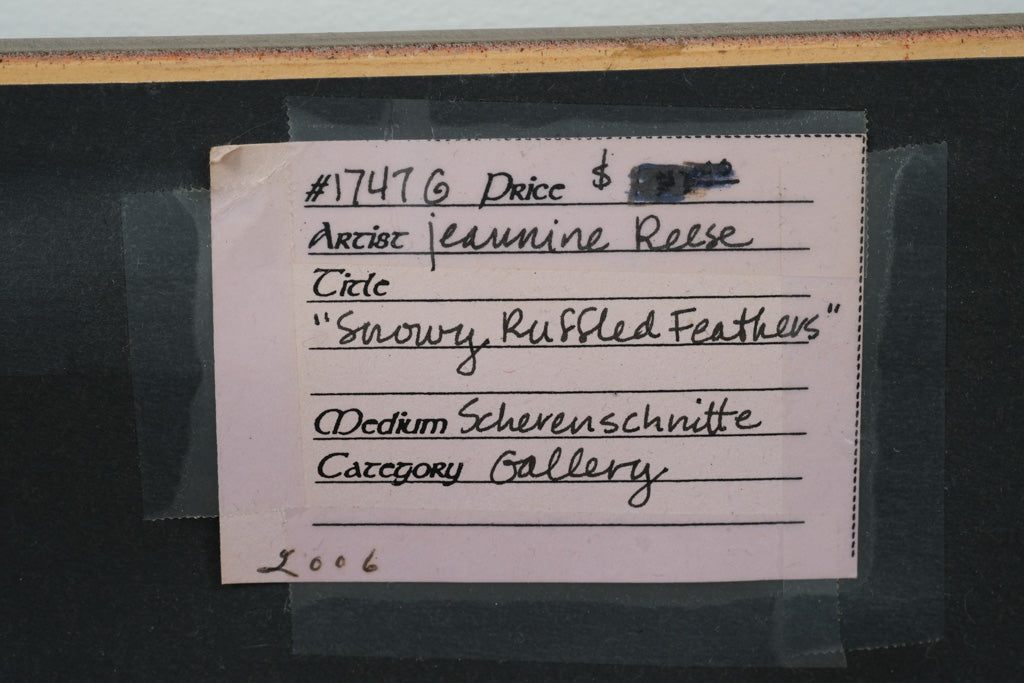 #17476 Price $
Artist jeannine Reese
Title
"Snowy Ruffled Feathers"
Medium Scherenschnitte
Category Gallery
2006